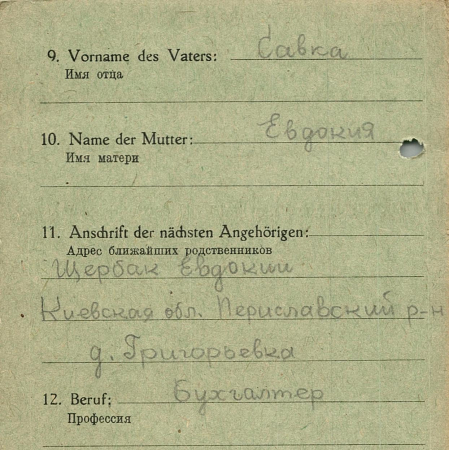 9. Vorname des Vaters: Савка
Имя отца
10. Name der Mutter: Евдокия
Имя матери
11. Anschrift der nächsten Angehörigen:
Адрес ближайших родственников
Щербак Евдокии
Киевская обл. Периславский р-н
д. Григорьевка
12. Beruf: Бухгалтер
Профессия